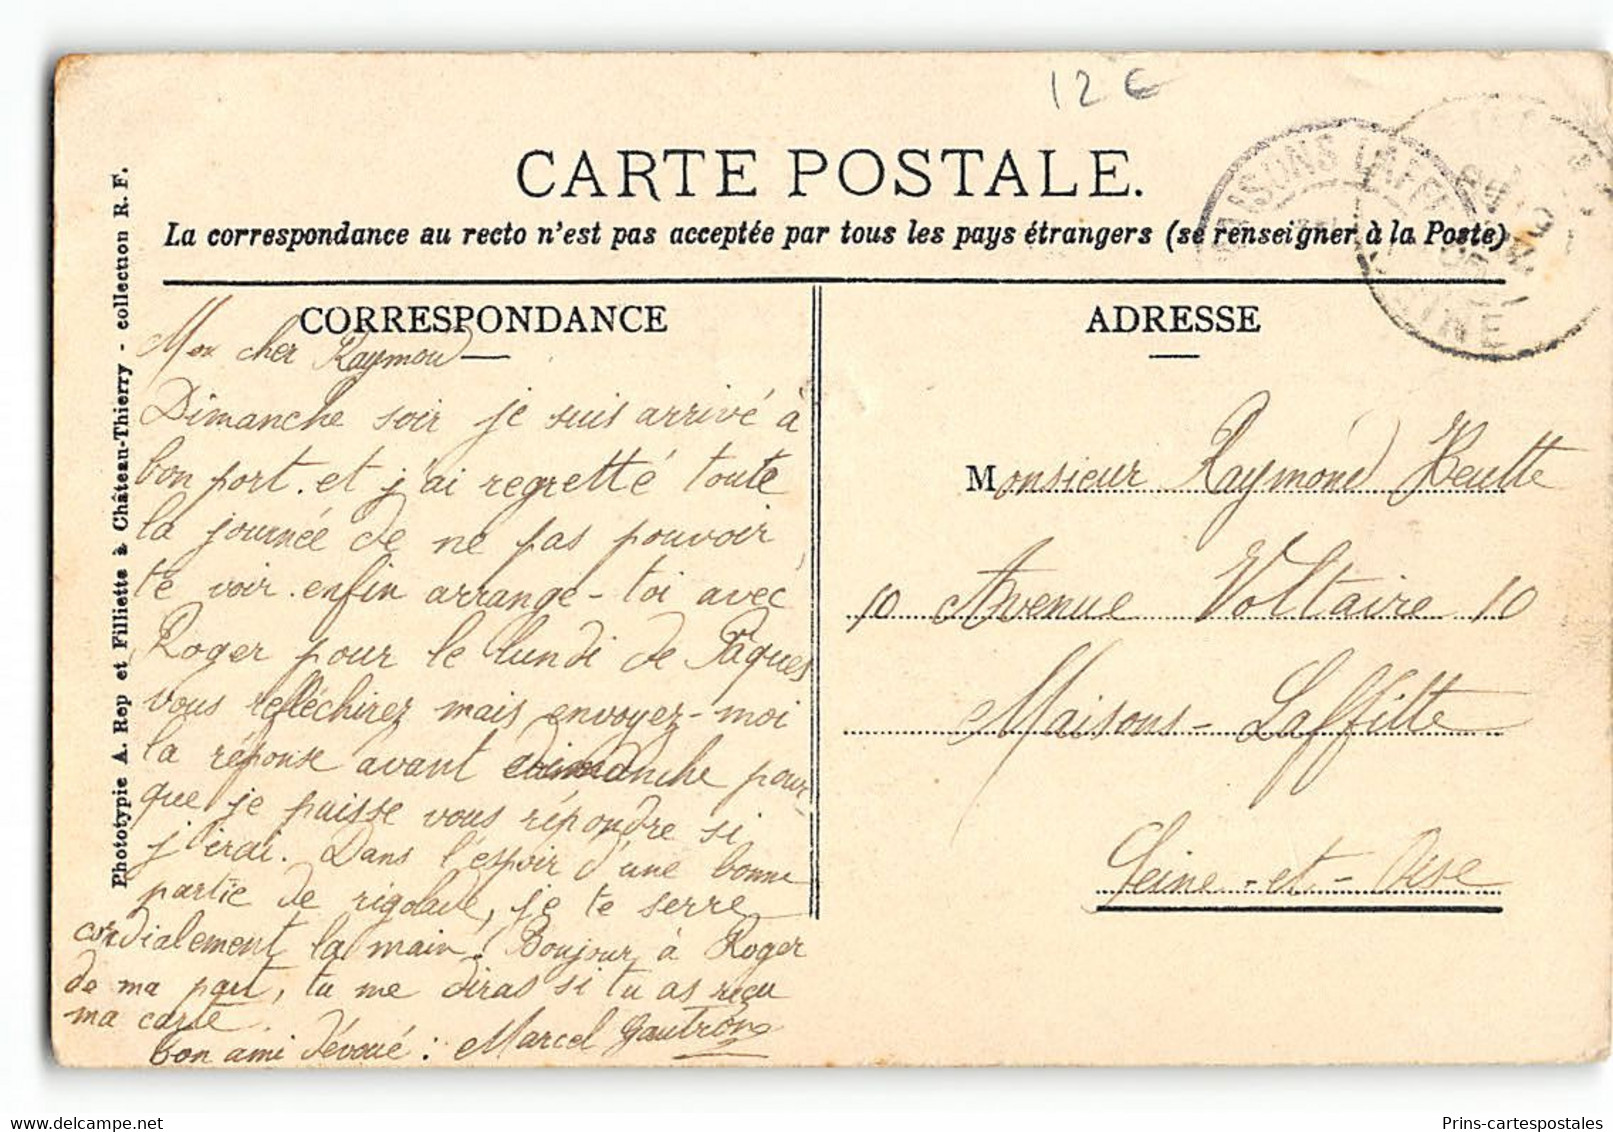 12 €
CARTE POSTALE.
La correspondance au recto n'est pas acceptée par tous les pays étrangers (se renseigner à la Poste)
MAISONS LAFFI
SEINE
Phototypie A. Rep et Filliette à Château-Thierry - collection R. F.
CORRESPONDANCE
Mon cher Raymond
Dimanche soir je suis arrivé à
bon port. et j'ai regretté toute
la journée de ne pas pouvoir
te voir. enfin arrange-toi avec
Roger pour le lundi de Pâques
vous refléchirez mais envoyez-moi
la réponse avant dimanche pour
que je puisse vous répondre si
j'irai. Dans l'espoir d'une bonne
partie de rigolade, je te serre
cordialement la main. Bonjour à Roger
de ma part, tu me diras si tu as reçu
ma carte.
bon ami dévoué : Marcel Gautron
ADRESSE
Monsieur Raymond Heutte
10 Avenue Voltaire 10
Maisons-Laffitte
Seine-et-Oise
delcampe.net
Prins-cartespostales